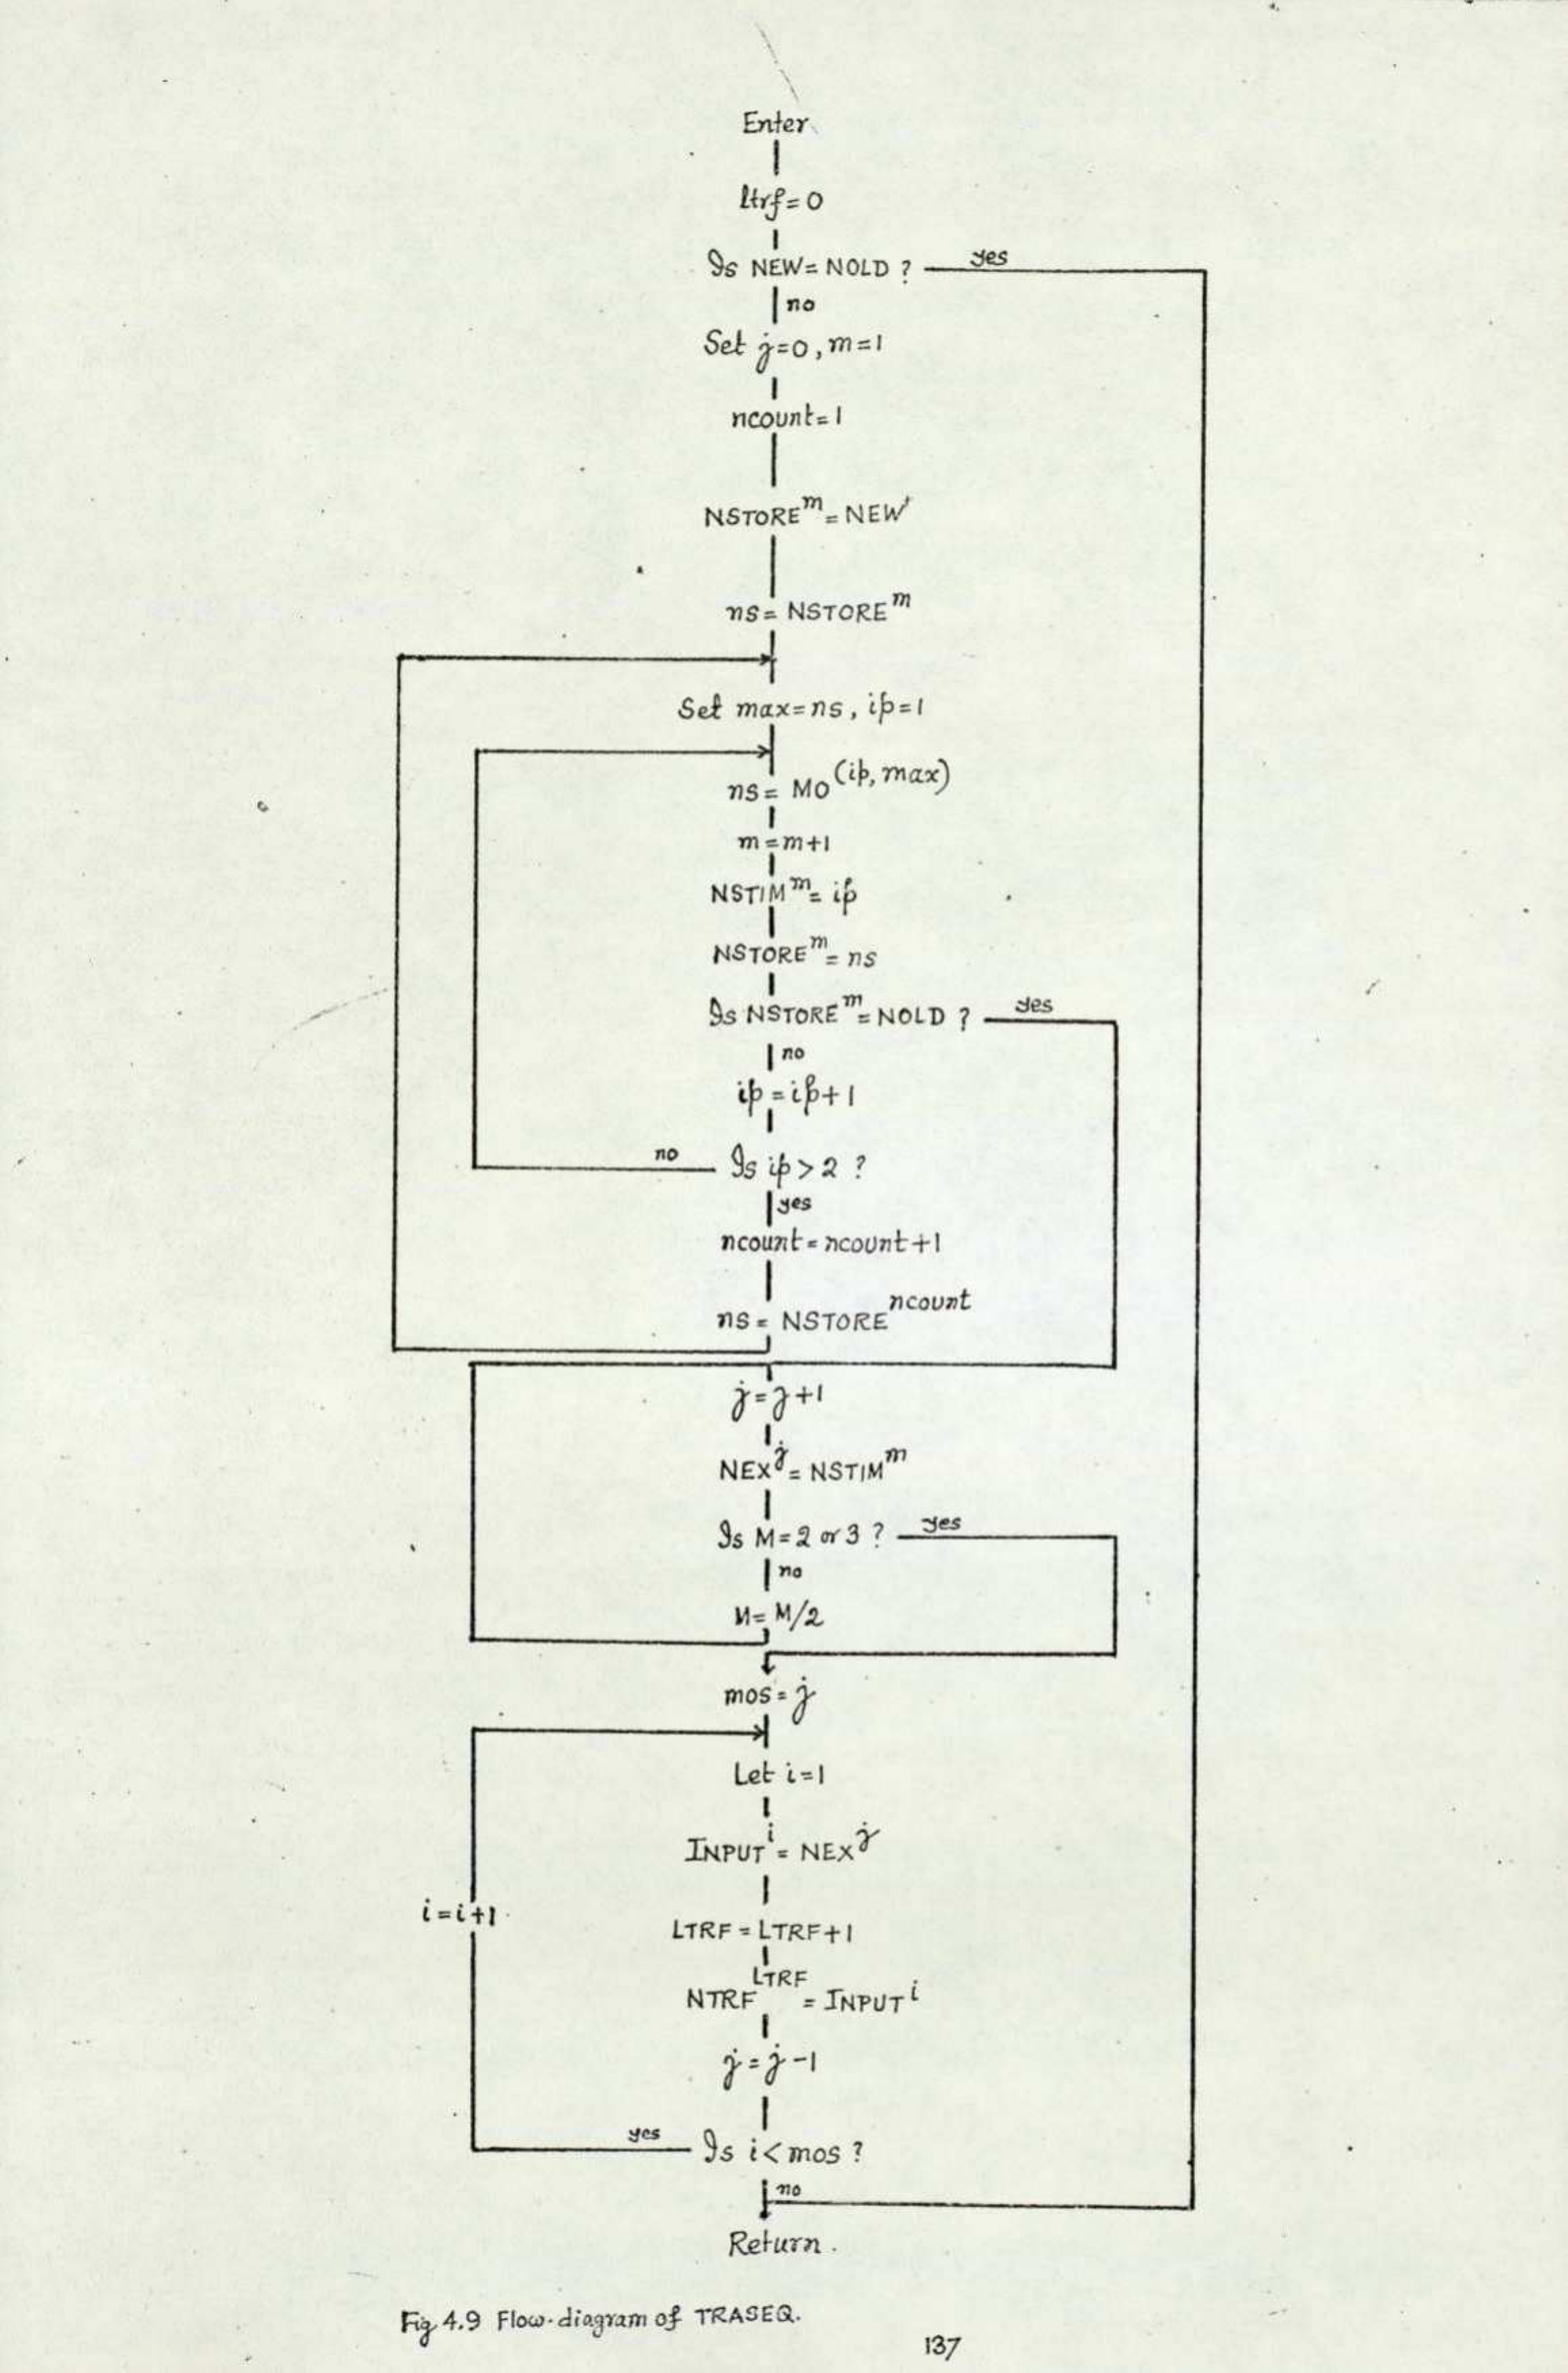 Enter
ltrf=0
Is NEW=NOLD ? yes
no
Set j=0, m=1
ncount=1
NSTORE^m = NEW
ns = NSTORE^m
Set max=ns, ip=1
ns = MO^(ip, max)
m=m+1
NSTIM^m = ip
NSTORE^m = ns
Is NSTORE^m = NOLD ? yes
no
ip = ip+1
no Is ip > 2 ?
yes
ncount = ncount+1
ns = NSTORE^ncount
j = j+1
NEX^j = NSTIM^m
Is M=2 or 3 ? yes
no
M = M/2
mos = j
Let i=1
INPUT^i = NEX^j
i=i+1
LTRF = LTRF+1
NTRF^LTRF = INPUT^i
j = j-1
yes Is i < mos ?
no
Return.
Fig 4.9 Flow-diagram of TRASEQ.
137